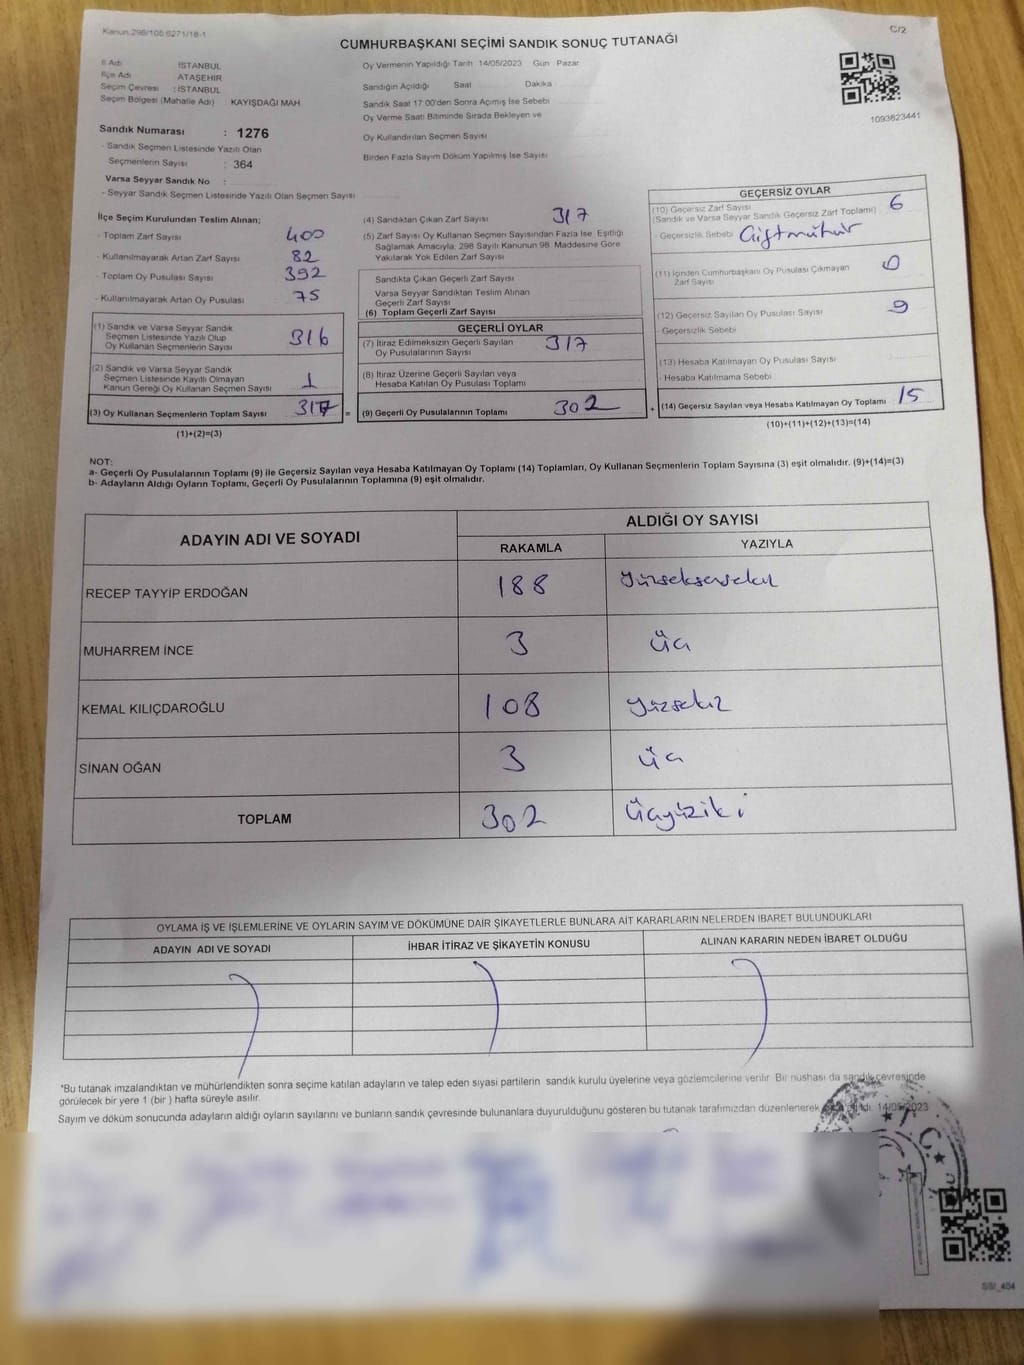 Kanun.298/105 6271/18-1
C/2
CUMHURBAŞKANI SEÇİMİ SANDIK SONUÇ TUTANAĞI
İl Adı İSTANBUL
İlçe Adı ATAŞEHİR
Seçim Çevresi : İSTANBUL
Seçim Bölgesi (Mahalle Adı) KAYIŞDAĞI MAH
Sandık Numarası : 1276
- Sandık Seçmen Listesinde Yazılı Olan
Seçmenlerin Sayısı : 364
Varsa Seyyar Sandık No :
- Seyyar Sandık Seçmen Listesinde Yazılı Olan Seçmen Sayısı
Oy Vermenin Yapıldığı Tarih 14/05/2023 Gün Pazar
Sandığın Açıldığı Saat Dakika
Sandık Saat 17:00'den Sonra Açılmış İse Sebebi
Oy Verme Saati Bitiminde Sırada Bekleyen ve
Oy Kullandırılan Seçmen Sayısı
Birden Fazla Sayım Döküm Yapılmış İse Sayısı
1093823441
İlçe Seçim Kurulundan Teslim Alınan;
- Toplam Zarf Sayısı 400
- Kullanılmayarak Artan Zarf Sayısı 82
- Toplam Oy Pusulası Sayısı 392
- Kullanılmayarak Artan Oy Pusulası 75
(1) Sandık ve Varsa Seyyar Sandık
Seçmen Listesinde Yazılı Olup
Oy Kullanan Seçmenlerin Sayısı 316
(2) Sandık ve Varsa Seyyar Sandık
Seçmen Listesinde Kayıtlı Olmayan
Kanun Gereği Oy Kullanan Seçmen Sayısı 1
(3) Oy Kullanan Seçmenlerin Toplam Sayısı 317 =
(1)+(2)=(3)
(4) Sandıktan Çıkan Zarf Sayısı 317
(5) Zarf Sayısı Oy Kullanan Seçmen Sayısından Fazla İse, Eşitliği
Sağlamak Amacıyla, 298 Sayılı Kanunun 98. Maddesine Göre
Yakılarak Yok Edilen Zarf Sayısı
Sandıkta Çıkan Geçerli Zarf Sayısı
Varsa Seyyar Sandıktan Teslim Alınan
Geçerli Zarf Sayısı
(6) Toplam Geçerli Zarf Sayısı
GEÇERLİ OYLAR
(7) İtiraz Edilmeksizin Geçerli Sayılan
Oy Pusulalarının Sayısı 317
(8) İtiraz Üzerine Geçerli Sayılan veya
Hesaba Katılan Oy Pusulası Toplamı
(9) Geçerli Oy Pusulalarının Toplamı 302 +
GEÇERSİZ OYLAR
(10) Geçersiz Zarf Sayısı
(Sandık ve Varsa Seyyar Sandık Geçersiz Zarf Toplamı) 6
- Geçersizlik Sebebi Çiftmühür
(11) İçinden Cumhurbaşkanı Oy Pusulası Çıkmayan
Zarf Sayısı 0
(12) Geçersiz Sayılan Oy Pusulası Sayısı 9
- Geçersizlik Sebebi
(13) Hesaba Katılmayan Oy Pusulası Sayısı
- Hesaba Katılmama Sebebi
(14) Geçersiz Sayılan veya Hesaba Katılmayan Oy Toplamı 15
(10)+(11)+(12)+(13)=(14)
NOT:
a- Geçerli Oy Pusulalarının Toplamı (9) ile Geçersiz Sayılan veya Hesaba Katılmayan Oy Toplamı (14) Toplamları, Oy Kullanan Seçmenlerin Toplam Sayısına (3) eşit olmalıdır. (9)+(14)=(3)
b- Adayların Aldığı Oyların Toplamı, Geçerli Oy Pusulalarının Toplamına (9) eşit olmalıdır.
ADAYIN ADI VE SOYADI
ALDIĞI OY SAYISI
RAKAMLA YAZIYLA
RECEP TAYYİP ERDOĞAN 188 Yüzseksensekiz
MUHARREM İNCE 3 üç
KEMAL KILIÇDAROĞLU 108 yüzsekiz
SİNAN OĞAN 3 üç
TOPLAM 302 üçyüziki
OYLAMA İŞ VE İŞLEMLERİNE VE OYLARIN SAYIM VE DÖKÜMÜNE DAİR ŞİKAYETLERLE BUNLARA AİT KARARLARIN NELERDEN İBARET BULUNDUKLARI
ADAYIN ADI VE SOYADI İHBAR İTİRAZ VE ŞİKAYETİN KONUSU ALINAN KARARIN NEDEN İBARET OLDUĞU
*Bu tutanak imzalandıktan ve mühürlendikten sonra seçime katılan adayların ve talep eden siyasi partilerin sandık kurulu üyelerine veya gözlemcilerine verilir. Bir nüshası da sandık çevresinde
görülecek bir yere 1 (bir ) hafta süreyle asılır.
Sayım ve döküm sonucunda adayların aldığı oyların sayılarını ve bunların sandık çevresinde bulunanlara duyurulduğunu gösteren bu tutanak tarafımızdan düzenlenerek 14/05/2023
T.C.
SSI_404